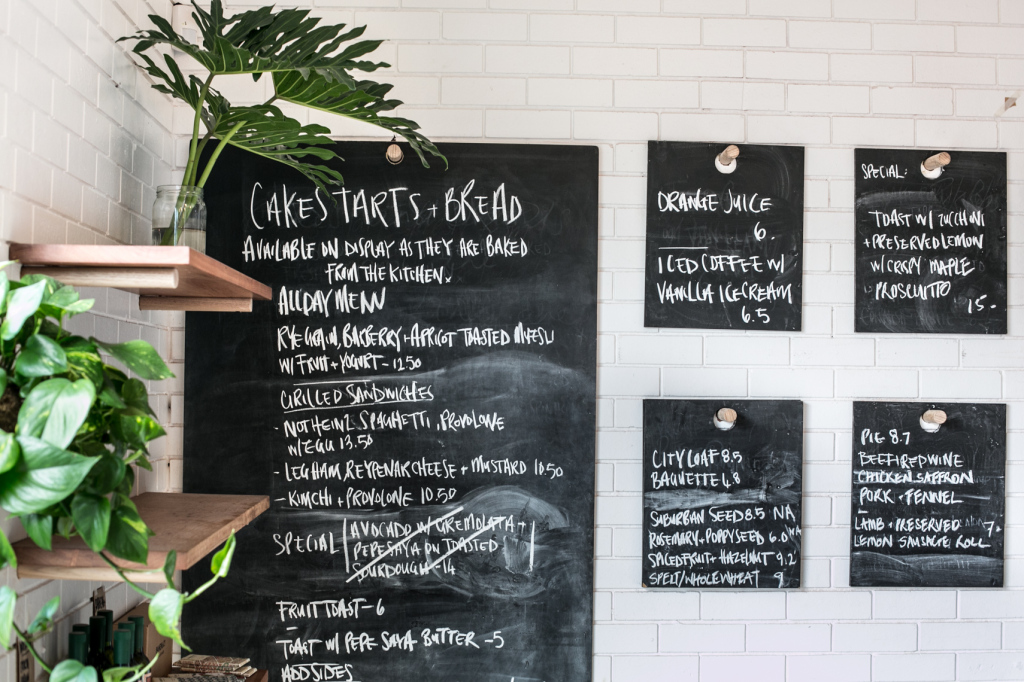 CAKES TARTS + BREAD
AVAILABLE ON DISPLAY AS THEY ARE BAKED
FROM THE KITCHEN.
ALLDAY MENU
RYE GRAIN, BARBERRY + APRICOT TOASTED MUESLI
W/ FRUIT + YOGURT - 12.50
GRILLED SANDWICHES
- NOT HEINZ SPAGHETTI, PROVOLONE
W/ EGG 13.50
- LEG HAM, REYPENAR CHEESE + MUSTARD 10.50
- KIMCHI + PROVOLONE 10.50
SPECIAL
AVOCADO W/ GREMOLATA +
PEPE SAYA ON TOASTED
SOURDOUGH - 14
FRUIT TOAST - 6
TOAST W/ PEPE SAYA BUTTER - 5
ADD SIDES
ORANGE JUICE
6.
ICED COFFEE W/
VANILLA ICECREAM
6.5
SPECIAL:
TOAST W/ ZUCCHINI
+ PRESERVED LEMON
W/ CRISPY MAPLE
PROSCUITTO
15-
CITY LOAF 8.5
BAGUETTE 4.8
SUBURBAN SEED 8.5 NA
ROSEMARY + POPPYSEED 6.0
SPICED FRUIT + HAZELNUT 9.2
SPELT/WHOLEWHEAT 9
PIE 8.7
BEEF + RED WINE
CHICKEN SAFFRON
PORK + FENNEL
LAMB + PRESERVED 7-
LEMON SAUSAGE ROLL